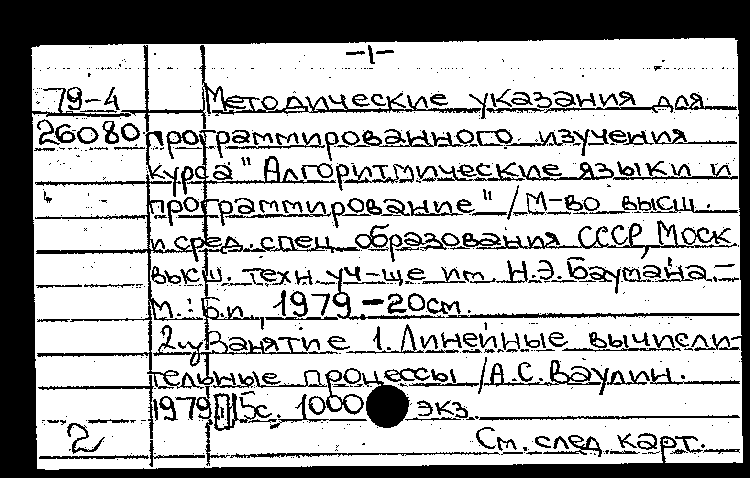 -1-
79-4 Методические указания для
26080 программированного изучения
курса "Алгоритмические языки и
программирование" / М-во высш.
и сред. спец. образования СССР, Моск.
высш. техн. уч-ще им. Н.Э.Баумана.-
М.: Б.и., 1979.-20см.
Занятие 1. Линейные вычисли-
тельные процессы /А.С.Ваулин.
1979 15с. 1000 экз.
2 См. след. карт.